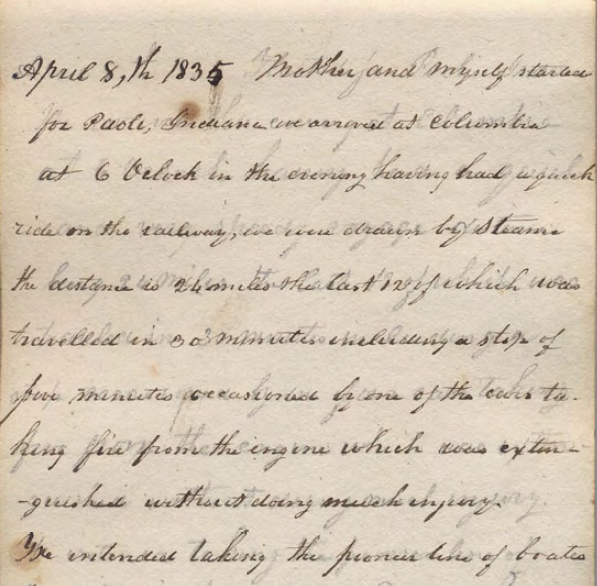 April 8,th 1835 Mother and myself started
for Paoli, Indiana we arrived at Columbia
at 6 Oclock in the evening having had a quick
ride on the railway, we were drawn by Steam
the distance is 24 miles the last 12 of which was
travelled in 33 minutes including a stop of
five minutes occasioned by one of the cars ta-
king fire from the engine which was extin-
-guished without doing much injury.
We intended taking the pioneer line of boates